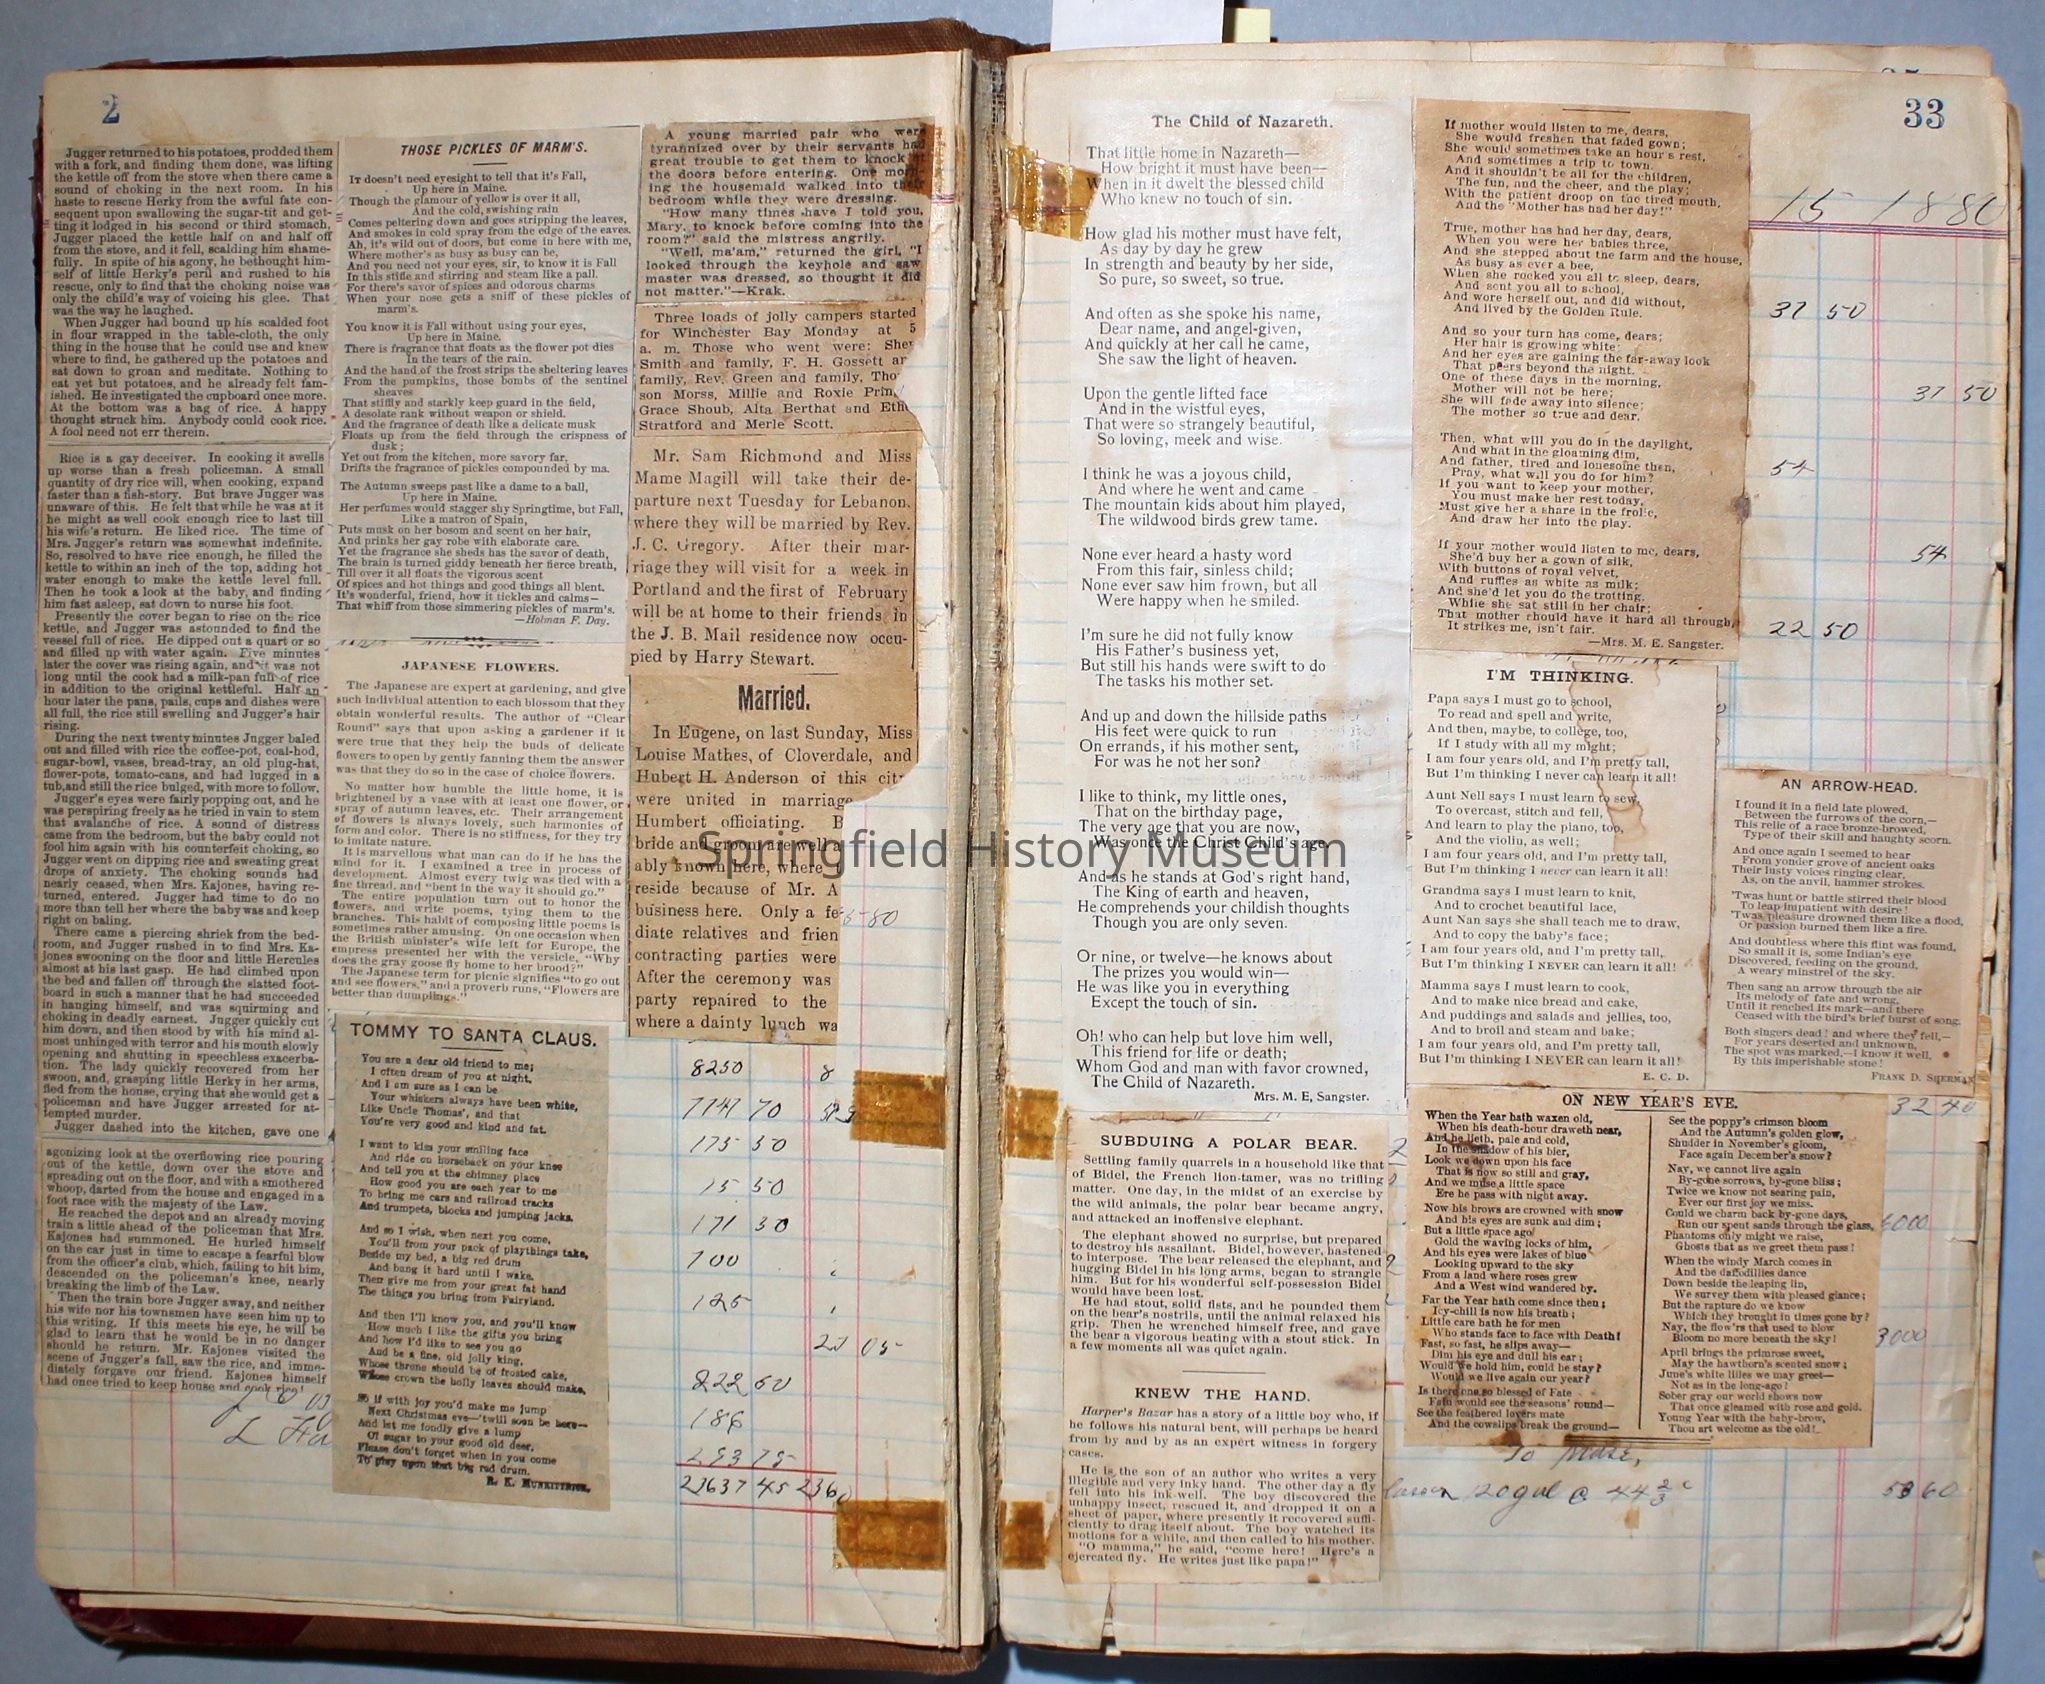 2
Jugger returned to his potatoes, prodded them
with a fork, and finding them done, was lifting
the kettle off from the stove when there came a
sound of choking in the next room. In his
haste to rescue Herky from the awful fate con-
sequent upon swallowing the sugar-tit and get-
ting it lodged in his second or third stomach,
Jugger placed the kettle half on and half off
from the stove, and it fell, scalding him shame-
fully. In spite of his agony, he bethought him-
self of little Herky's peril and rushed to his
rescue, only to find that the choking noise was
only the child's way of voicing his glee. That
was the way he laughed.
When Jugger had bound up his scalded foot
in flour wrapped in the table-cloth, the only
thing in the house that he could use and knew
where to find, he gathered up the potatoes and
sat down to groan and meditate. Nothing to
eat yet but potatoes, and he already felt fam-
ished. He investigated the cupboard once more.
At the bottom was a bag of rice. A happy
thought struck him. Anybody could cook rice.
A fool need not err therein.
Rice is a gay deceiver. In cooking it swells
up worse than a fresh policeman. A small
quantity of dry rice will, when cooking, expand
faster than a fish-story. But brave Jugger was
unaware of this. He felt that while he was at it
he might as well cook enough rice to last till
his wife's return. He liked rice. The time of
Mrs. Jugger's return was somewhat indefinite.
So, resolved to have rice enough, he filled the
kettle to within an inch of the top, adding hot
water enough to make the kettle level full.
Then he took a look at the baby, and finding
him fast asleep, sat down to nurse his foot.
Presently the cover began to rise on the rice
kettle, and Jugger was astounded to find the
vessel full of rice. He dipped out a quart or so
and filled up with water again. Five minutes
later the cover was rising again, and it was not
long until the cook had a milk-pan full of rice
in addition to the original kettleful. Half an
hour later the pans, pails, cups and dishes were
all full, the rice still swelling and Jugger's hair
rising.
During the next twenty minutes Jugger baled
out and filled with rice the coffee-pot, coal-hod,
sugar-bowl, vases, bread-tray, an old plug-hat,
flower-pots, tomato-cans, and had lugged in a
tub, and still the rice bulged, with more to follow.
Jugger's eyes were fairly popping out, and he
was perspiring freely as he tried in vain to stem
that avalanche of rice. A sound of distress
came from the bedroom, but the baby could not
fool him again with his counterfeit choking, so
Jugger went on dipping rice and sweating great
drops of anxiety. The choking sounds had
nearly ceased, when Mrs. Kajones, having re-
turned, entered. Jugger had time to do no
more than tell her where the baby was and keep
right on baling.
There came a piercing shriek from the bed-
room, and Jugger rushed in to find Mrs. Ka-
jones swooning on the floor and little Hercules
almost at his last gasp. He had climbed upon
the bed and fallen off through the slatted foot-
board in such a manner that he had succeeded
in hanging himself, and was squirming and
choking in deadly earnest. Jugger quickly cut
him down, and then stood by with his mind al-
most unhinged with terror and his mouth slowly
opening and shutting in speechless exacerba-
tion. The lady quickly recovered from her
swoon, and, grasping little Herky in her arms,
fled from the house, crying that she would get a
policeman and have Jugger arrested for at-
tempted murder.
Jugger dashed into the kitchen, gave one
agonizing look at the overflowing rice pouring
out of the kettle, down over the stove and
spreading out on the floor, and with a smothered
whoop, darted from the house and engaged in a
foot race with the majesty of the Law.
He reached the depot and an already moving
train a little ahead of the policeman that Mrs.
Kajones had summoned. He hurled himself
on the car just in time to escape a fearful blow
from the officer's club, which, failing to hit him,
descended on the policeman's knee, nearly
breaking the limb of the Law.
Then the train bore Jugger away, and neither
his wife nor his townsmen have seen him up to
this writing. If this meets his eye, he will be
glad to learn that he would be in no danger
should he return. Mr. Kajones visited the
scene of Jugger's fall, saw the rice, and imme-
diately forgave our friend. Kajones himself
had once tried to keep house and cook rice!
THOSE PICKLES OF MARM'S.
IT doesn't need eyesight to tell that it's Fall,
Up here in Maine.
Though the glamour of yellow is over it all,
And the cold, swishing rain
Comes peltering down and goes stripping the leaves,
And smokes in cold spray from the edge of the eaves.
Ah, it's wild out of doors, but come in here with me,
Where mother's as busy as busy can be,
And you need not your eyes, sir, to know it is Fall
In this stifle and stirring and steam like a pall.
For there's savor of spices and odorous charms
When your nose gets a sniff of these pickles of
marm's.
You know it is Fall without using your eyes,
Up here in Maine.
There is fragrance that floats as the flower pot dies
In the tears of the rain.
And the hand of the frost strips the sheltering leaves
From the pumpkins, those bombs of the sentinel
sheaves
That stiffly and starkly keep guard in the field,
A desolate rank without weapon or shield.
And the fragrance of death like a delicate musk
Floats up from the field through the crispness of
dusk;
Yet out from the kitchen, more savory far,
Drifts the fragrance of pickles compounded by ma.
The Autumn sweeps past like a dame to a ball,
Up here in Maine.
Her perfumes would stagger shy Springtime, but Fall,
Like a matron of Spain,
Puts musk on her bosom and scent on her hair,
And prinks her gay robe with elaborate care.
Yet the fragrance she sheds has the savor of death,
The brain is turned giddy beneath her fierce breath,
Till over it all floats the vigorous scent
Of spices and hot things and good things all blent.
It's wonderful, friend, how it tickles and calms—
That whiff from those simmering pickles of marm's.
—Holman F. Day.
JAPANESE FLOWERS.
The Japanese are expert at gardening, and give
such individual attention to each blossom that they
obtain wonderful results. The author of "Clear
Round" says that upon asking a gardener if it
were true that they help the buds of delicate
flowers to open by gently fanning them the answer
was that they do so in the case of choice flowers.
No matter how humble the little home, it is
brightened by a vase with at least one flower, or
spray of autumn leaves, etc. Their arrangement
of flowers is always lovely, such harmonies of
form and color. There is no stiffness, for they try
to imitate nature.
It is marvellous what man can do if he has the
mind for it. I examined a tree in process of
development. Almost every twig was tied with a
fine thread, and "bent in the way it should go."
The entire population turn out to honor the
flowers, and write poems, tying them to the
branches. This habit of composing little poems is
sometimes rather amusing. On one occasion when
the British minister's wife left for Europe, the
empress presented her with the versicle, "Why
does the gray goose fly home to her brood?"
The Japanese term for picnic signifies "to go out
and see flowers," and a proverb runs, "Flowers are
better than dumplings."
TOMMY TO SANTA CLAUS.
You are a dear old friend to me;
I often dream of you at night,
And I am sure as I can be
Your whiskers always have been white,
Like Uncle Thomas', and that
You're very good and kind and fat.
I want to kiss your smiling face
And ride on horseback on your knee
And tell you at the chimney place
How good you are each year to me
To bring me cars and railroad tracks
And trumpets, blocks and jumping jacks.
And so I wish, when next you come,
You'll from your pack of playthings take,
Beside my bed, a big red drum
And bang it hard until I wake.
Then give me from your great fat hand
The things you bring from Fairyland.
And then I'll know you, and you'll know
How much I like the gifts you bring
And how I'd like to see you go
And be a fine, old jolly king,
Whose throne should be of frosted cake,
Whose crown the holly leaves should make.
So if with joy you'd make me jump
Next Christmas eve—'twill soon be here—
And let me fondly give a lump
Of sugar to your good old deer,
Please don't forget when in you come
To play upon that big red drum.
R. K. MUNKITTRICK.
A young married pair who were
tyrannized over by their servants had
great trouble to get them to knock at
the doors before entering. One morn-
ing the housemaid walked into their
bedroom while they were dressing.
"How many times have I told you,
Mary, to knock before coming into the
room?" said the mistress angrily.
"Well, ma'am," returned the girl, "I
looked through the keyhole and saw
master was dressed, so thought it did
not matter."—Krak.
Three loads of jolly campers started
for Winchester Bay Monday at 5
a. m. Those who went were: Sher
Smith and family, F. H. Gossett an
family, Rev. Green and family, Tho
son Morss, Millie and Roxie Prin
Grace Shoub, Alta Berthat and Eth
Stratford and Merle Scott.
Mr. Sam Richmond and Miss
Mame Magill will take their de-
parture next Tuesday for Lebanon,
where they will be married by Rev.
J. C. Gregory. After their mar-
riage they will visit for a week in
Portland and the first of February
will be at home to their friends in
the J. B. Mail residence now occu-
pied by Harry Stewart.
Married.
In Eugene, on last Sunday, Miss
Louise Mathes, of Cloverdale, and
Hubert H. Anderson of this city
were united in marriage
Humbert officiating. B
bride and groom are well a
ably known here, where
reside because of Mr. A
business here. Only a fe
diate relatives and frien
contracting parties were
After the ceremony was
party repaired to the
where a dainty lunch wa
8250 8
7747 70
175 50
15 50
171 30
700
125
22 05
822 60
186
293 75
23637 45 2360
33
15 1880
37 50
37 50
54
54
22 50
The Child of Nazareth.
That little home in Nazareth—
How bright it must have been—
When in it dwelt the blessed child
Who knew no touch of sin.
How glad his mother must have felt,
As day by day he grew
In strength and beauty by her side,
So pure, so sweet, so true.
And often as she spoke his name,
Dear name, and angel-given,
And quickly at her call he came,
She saw the light of heaven.
Upon the gentle lifted face
And in the wistful eyes,
That were so strangely beautiful,
So loving, meek and wise.
I think he was a joyous child,
And where he went and came
The mountain kids about him played,
The wildwood birds grew tame.
None ever heard a hasty word
From this fair, sinless child;
None ever saw him frown, but all
Were happy when he smiled.
I'm sure he did not fully know
His Father's business yet,
But still his hands were swift to do
The tasks his mother set.
And up and down the hillside paths
His feet were quick to run
On errands, if his mother sent,
For was he not her son?
I like to think, my little ones,
That on the birthday page,
The very age that you are now,
Was once the Christ Child's age.
And as he stands at God's right hand,
The King of earth and heaven,
He comprehends your childish thoughts
Though you are only seven.
Or nine, or twelve—he knows about
The prizes you would win—
He was like you in everything
Except the touch of sin.
Oh! who can help but love him well,
This friend for life or death;
Whom God and man with favor crowned,
The Child of Nazareth.
Mrs. M. E, Sangster.
SUBDUING A POLAR BEAR.
Settling family quarrels in a household like that
of Bidel, the French lion-tamer, was no trifling
matter. One day, in the midst of an exercise by
the wild animals, the polar bear became angry,
and attacked an inoffensive elephant.
The elephant showed no surprise, but prepared
to destroy his assailant. Bidel, however, hastened
to interpose. The bear released the elephant, and
hugging Bidel in his long arms, began to strangle
him. But for his wonderful self-possession Bidel
would have been lost.
He had stout, solid fists, and he pounded them
on the bear's nostrils, until the animal relaxed his
grip. Then he wrenched himself free, and gave
the bear a vigorous beating with a stout stick. In
a few moments all was quiet again.
KNEW THE HAND.
Harper's Bazar has a story of a little boy who, if
he follows his natural bent, will perhaps be heard
from by and by as an expert witness in forgery
cases.
He is the son of an author who writes a very
illegible and very inky hand. The other day a fly
fell into his ink-well. The boy discovered the
unhappy insect, rescued it, and dropped it on a
sheet of paper, where presently it recovered suffi-
ciently to drag itself about. The boy watched its
motions for a while, and then called to his mother.
"O mamma," he said, "come here! Here's a
ejercated fly. He writes just like papa!"
If mother would listen to me, dears,
She would freshen that faded gown;
She would sometimes take an hour's rest,
And sometimes a trip to town.
And it shouldn't be all for the children,
The fun, and the cheer, and the play;
With the patient droop on the tired mouth,
And the "Mother has had her day!"
True, mother has had her day, dears,
When you were her babies three,
And she stepped about the farm and the house,
As busy as ever a bee,
When she rocked you all to sleep, dears,
And sent you all to school,
And wore herself out, and did without,
And lived by the Golden Rule.
And so your turn has come, dears;
Her hair is growing white;
And her eyes are gaining the far-away look
That peers beyond the night.
One of these days in the morning,
Mother will not be here;
She will fade away into silence;
The mother so true and dear.
Then, what will you do in the daylight,
And what in the gloaming dim,
And father, tired and lonesome then,
Pray, what will you do for him?
If you want to keep your mother,
You must make her rest today,
Must give her a share in the frolic,
And draw her into the play.
If your mother would listen to me, dears,
She'd buy her a gown of silk,
With buttons of royal velvet,
And ruffles as white as milk;
And she'd let you do the trotting,
While she sat still in her chair;
That mother should have it hard all through,
It strikes me, isn't fair.
—Mrs. M. E. Sangster.
I'M THINKING.
Papa says I must go to school,
To read and spell and write,
And then, maybe, to college, too,
If I study with all my might;
I am four years old, and I'm pretty tall,
But I'm thinking I never can learn it all!
Aunt Nell says I must learn to sew,
To overcast, stitch and fell,
And learn to play the piano, too,
And the violin, as well;
I am four years old, and I'm pretty tall,
But I'm thinking I never can learn it all!
Grandma says I must learn to knit,
And to crochet beautiful lace,
Aunt Nan says she shall teach me to draw,
And to copy the baby's face;
I am four years old, and I'm pretty tall,
But I'm thinking I NEVER can learn it all!
Mamma says I must learn to cook,
And to make nice bread and cake,
And puddings and salads and jellies, too,
And to broil and steam and bake;
I am four years old, and I'm pretty tall,
But I'm thinking I NEVER can learn it all!
E. C. D.
AN ARROW-HEAD.
I found it in a field late plowed,
Between the furrows of the corn,—
This relic of a race bronze-browed,
Type of their skill and haughty scorn.
And once again I seemed to hear
From yonder grove of ancient oaks
Their lusty voices ringing clear,
As, on the anvil, hammer strokes.
'Twas hunt or battle stirred their blood
To leap impatient with desire!
'Twas pleasure drowned them like a flood,
Or passion burned them like a fire.
And doubtless where this flint was found,
So small it is, some Indian's eye
Discovered, feeding on the ground,
A weary minstrel of the sky.
Then sang an arrow through the air
Its melody of fate and wrong,
Until it reached its mark—and there
Ceased with the bird's brief burst of song.
Both singers dead! and where they fell,—
For years deserted and unknown,
The spot was marked,—I know it well,
By this imperishable stone!
FRANK D. SHERMAN
ON NEW YEAR'S EVE.
When the Year hath waxen old,
When his death-hour draweth near,
And he lieth, pale and cold,
In the shadow of his bier,
Look we down upon his face
That is now so still and gray,
And we muse a little space
Ere he pass with night away.
Now his brows are crowned with snow
And his eyes are sunk and dim;
But a little space ago
Gold the waving locks of him,
And his eyes were lakes of blue
Looking upward to the sky
From a land where roses grew
And a West wind wandered by.
Far the Year hath come since then;
Icy-chill is now his breath;
Little care hath he for men
Who stands face to face with Death!
Fast, so fast, he slips away—
Dim his eye and dull his ear;
Would we hold him, could be stay?
Would we live again our year?
Is there one so blessed of Fate
Fain would see the seasons' round—
See the feathered lovers mate
And the cowslips break the ground—
See the poppy's crimson bloom
And the Autumn's golden glow,
Shudder in November's gloom,
Face again December's snow?
Nay, we cannot live again
By-gone sorrows, by-gone bliss;
Twice we know not searing pain,
Ever our first joy we miss.
Could we charm back by-gone days,
Run our spent sands through the glass,
Phantoms only might we raise,
Ghosts that as we greet them pass!
When the windy March comes in
And the daffodillies dance
Down beside the leaping lin,
We survey them with pleased glance;
But the rapture do we know
Which they brought in times gone by?
Nay, the flow'rs that used to blow
Bloom no more beneath the sky!
April brings the primrose sweet,
May the hawthorn's scented snow;
June's white lilies we may greet—
Not as in the long-ago!
Sober gray our world shows now
That once gleamed with rose and gold.
Young Year with the baby-brow,
Thou art welcome as the old!
32 40
6000
3000
To Mdse,
120 gal @ 44 2/3 c 53 60
Springfield History Museum